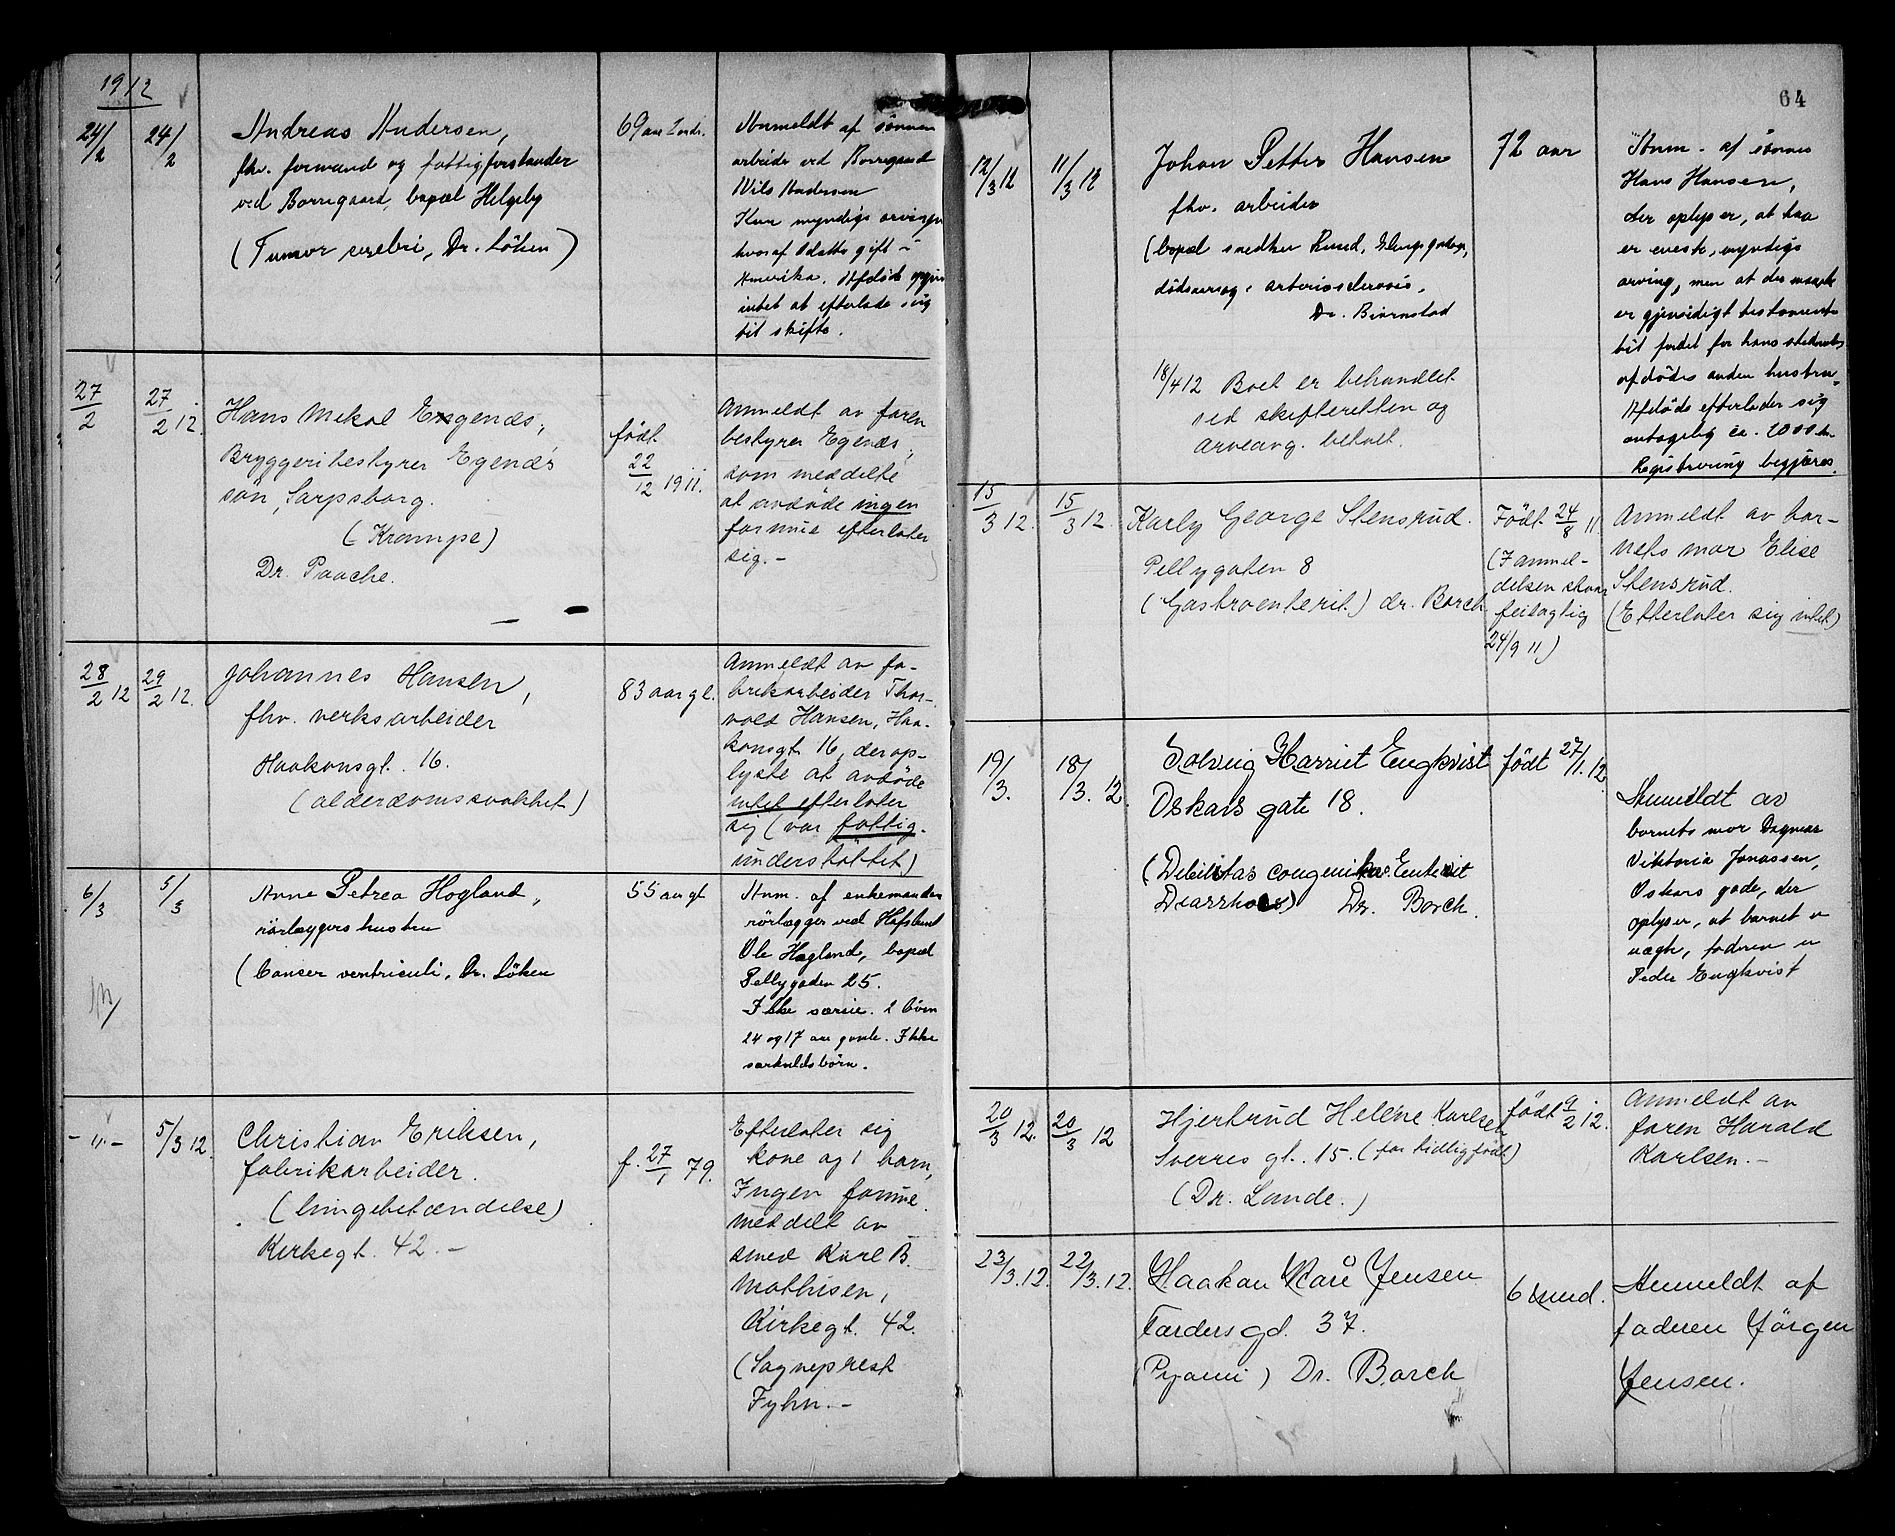 1912
24/2 24/2 Andreas Andersen, 69 aar
fhv. formand og fattigforstander
ved Borregaard, bopæl Helgeby
(Tumor cerebri, Dr. Löken)
Anmeldt af sönnen
arbeider ved Borregaard
Nils Andersen
Kun myndige arvinger
hvoraf 1 datter gift i
Amerika. Afdöde
intet at efterlade sig
til skifte.
27/2 27/2 12. Hans Mekal Egenæs,
Bryggeribestyrer Egenæs'
sön, Sarpsborg.
(Krampe)
Dr. Paache.
født
22/12 1911.
Anmeldt av faren
bestyrer Egenæs,
som meddelte
at avdöde ingen
formue efterlater
sig.-
28/2 12 29/2 12. Johannes Hansen, 83 aar gl.
fhv. verksarbeider
Haakonsgt. 16.
(alderdomssvakhet)
Anmeldt av fa-
brikarbeider Thor-
vald Hansen, Haa-
konsgt. 16, der op-
lyste at avdöde
intet efterlater
sig (var fattig-
understöttet)
6/3 5/3 Anne Petrea Hogland, 55 aar gl
rörlæggers hustru
(Cancer ventriculi, Dr. Löken
Anm. af enkemanden
rörlægger ved Hafslund
Ole Hogland, bopæl
Pellygaden 25.
Ikke særeie. 2 börn
24 og 17 aar gamle. Ikke
særkuldsbörn.
-"- 5/3 12. Christian Eriksen, f. 27/1 79.
fabrikarbeider.
(lungebetændelse)
Kirkegt. 42.-
Efterlater sig
kone og 1 barn,
Ingen formue.
Meddelt av
smed Karl B.
Mathisen,
Kirkegt. 42.
(Sogneprest
Fyhn.-
64
12/3 12 11/3 12 Johan Petter Hansen 72 aar
fhv. arbeider
(bopæl snedker Ruud,
dödsaarsag: arteriosclerosis.
Dr. Björnstad
18/4 12 Boet er behandlet
ved skifteretten og
arveavg. betalt.
Anm. af sönnen
Hans Hansen,
der oplyser, at han
er eneste, myndige
arving, men at der
er gjensidigt testamente
til fordel for hans stedmor,
afdödes anden hustru.
Afdöde efterlader sig
antagelig ca. 2000 kr.
Registrering begjæres.
15/3 12. 15/3 12. Karly George Stensrud. Født 24/8 11.
Pellygaten 8
(Gastroenterit.) dr. Borch
(I anmel-
delsen staar
feilagtig
24/9 11)
Anmeldt av bar-
nets mor Elise
Stensrud.
(Efterlater sig intet)
19/3. 18/3. 12. Solveig Harriet Engkvist født 27/1. 12.
Oskars gate 18.
(Debilitas congenita. Enterit
Diarrhoe) Dr. Borch.
Anmeldt av
barnets mor Dagmar
Viktoria Jonassen,
Oskars gade, der
oplyser, at barnet er
uægte, faderen er
Peder Engkvist
20/3 12. 20/3 12 Hjertrud Helene Karlsen født 9/2 12.
Sverres gt. 15. (for tidlig født)
(Dr. Lande.)
Anmeldt av
faren Harald
Karlsen.-
23/3. 12. 22/3. 12. Haakon Kåre Jensen 6 mnd.
Færdersgd. 37.
(Pyæmi) Dr. Borch
Anmeldt af
faderen Jörgen
Jensen.